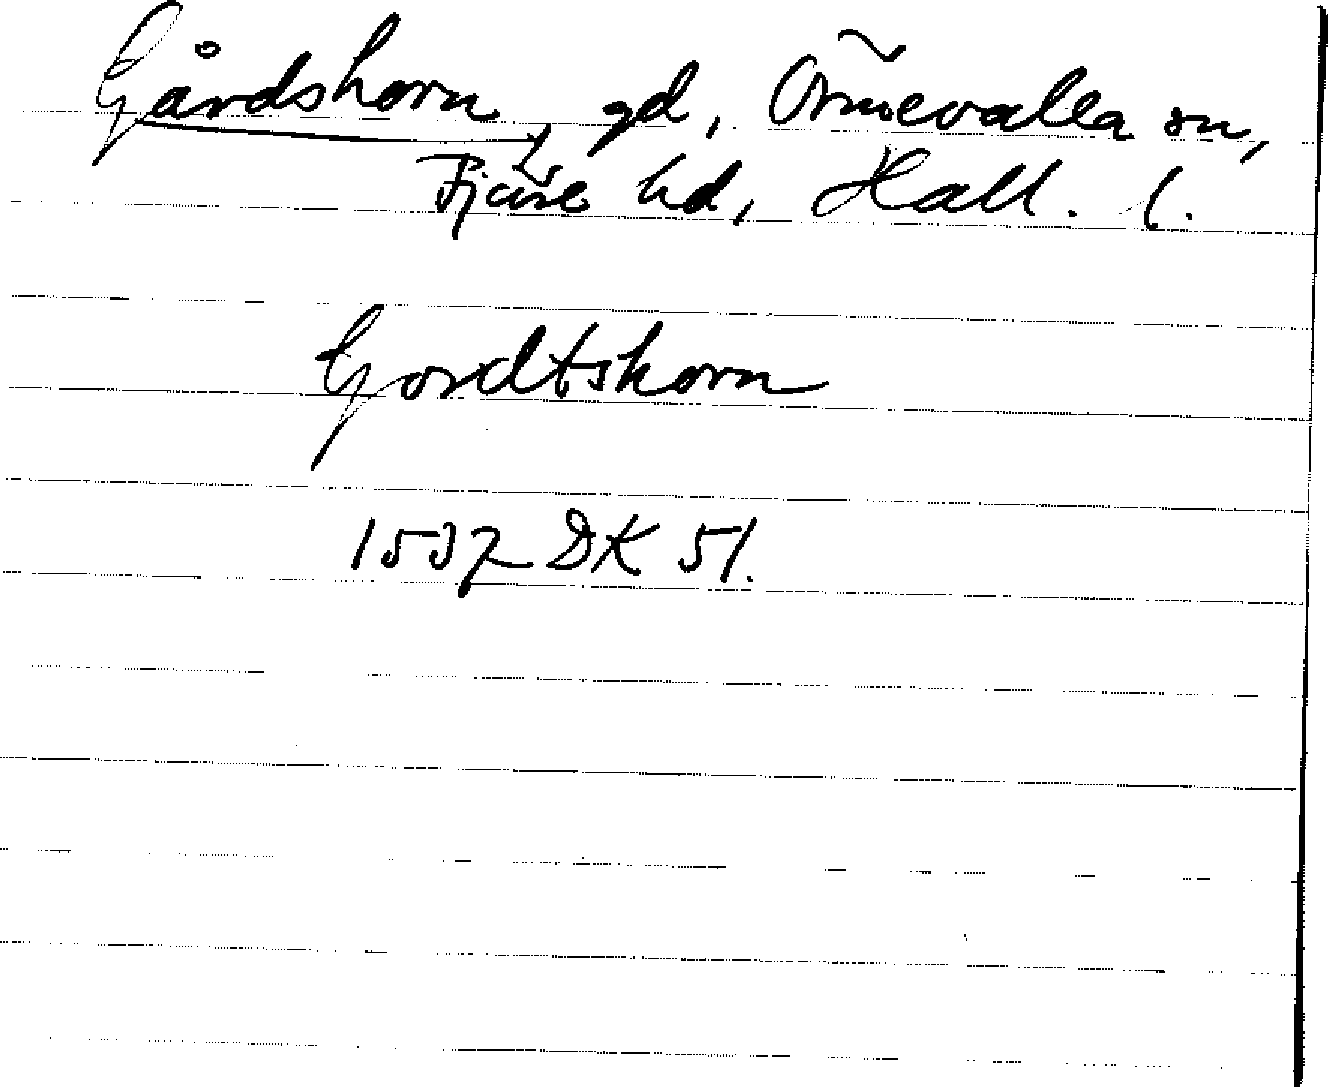 Gårdshorn, gd, Örmevalla sn,
Fjäre hd, Hall. l.
Gordtshorn
1537 DK 51.